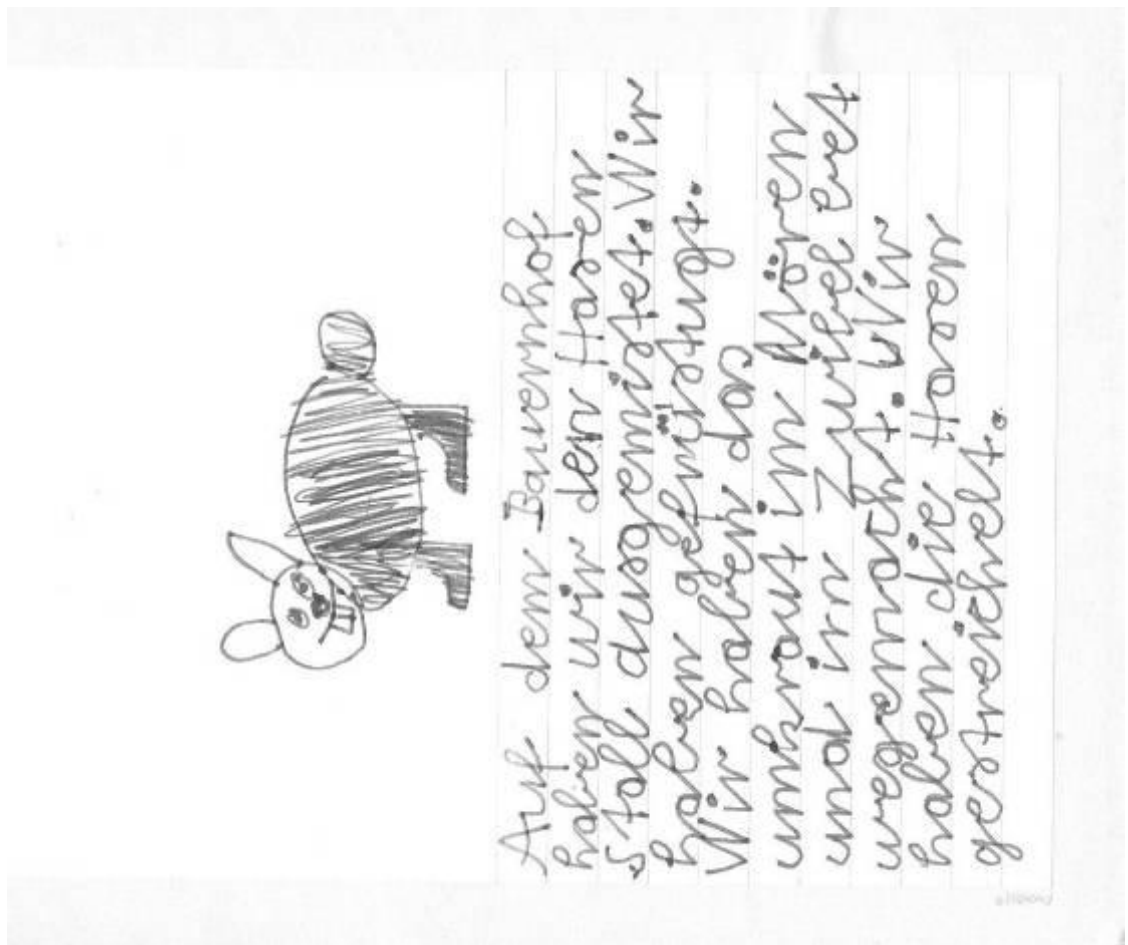 Auf dem Bauernhof
haben wir den Hasen
Stall ausgemistet. Wir
haben gefrüstugt.
Wir haben das
unkraut im Mören
und in Zwibel eet
wegemacht. Wir
haben die Hasen
gestreichelt.